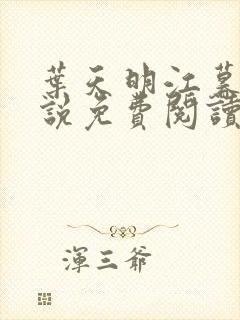 葉天明江暮
說免費閱讀
渾三爺